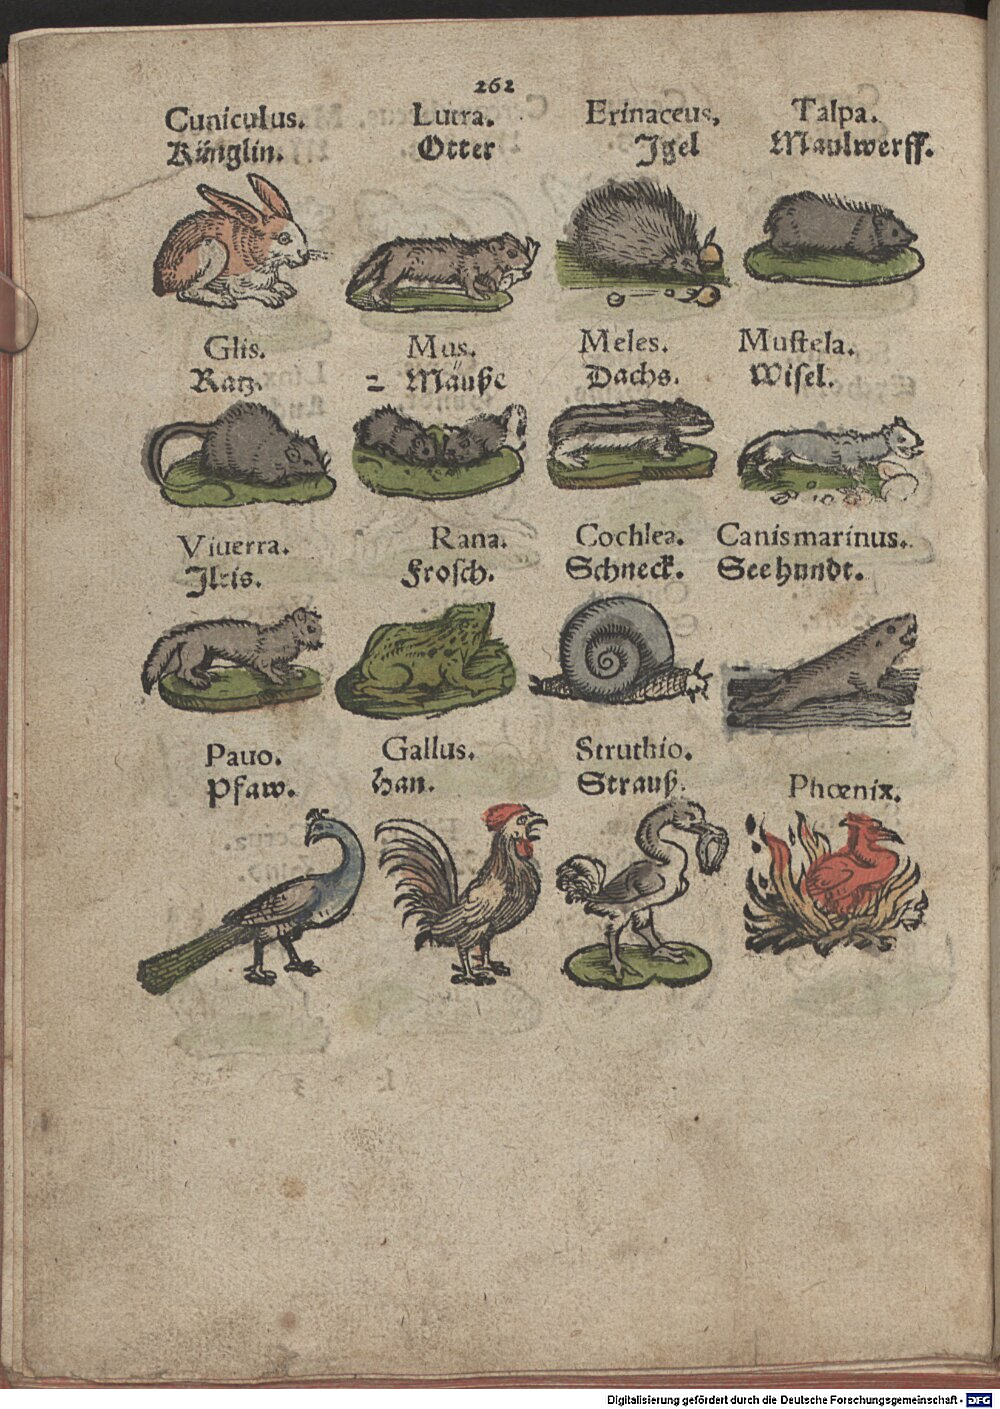 262
Cuniculus. Lutra. Erinaceus. Talpa.
Künglin. Otter Jgel Maulwerff.
Glis. Mus. Meles. Muſtela.
Ratz. 2 Mäuße Dachs. Wiſel.
Viuerra. Rana. Cochlea. Canis marinus.
Jltis. Froſch. Schneck. Seehundt.
Pauo. Gallus. Struthio.
Pfaw. Han. Strauß. Phœnix.
Digitalisierung gefördert durch die Deutsche Forschungsgemeinschaft - DFG